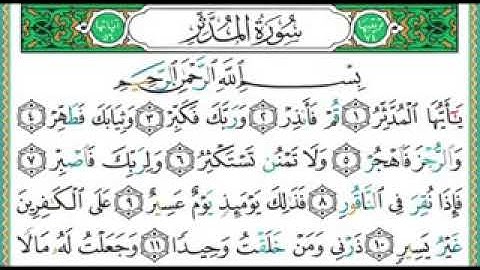 سُورَةُ المُدَّثِّر
بِسْمِ اللَّهِ الرَّحْمَٰنِ الرَّحِيمِ
يَا أَيُّهَا الْمُدَّثِّرُ ١ قُمْ فَأَنذِرْ ٢ وَرَبَّكَ فَكَبِّرْ ٣ وَثِيَابَكَ فَطَهِّرْ ٤
وَالرُّجْزَ فَاهْجُرْ ٥ وَلَا تَمْنُن تَسْتَكْثِرُ ٦ وَلِرَبِّكَ فَاصْبِرْ ٧
فَإِذَا نُقِرَ فِي النَّاقُورِ ٨ فَذَٰلِكَ يَوْمَئِذٍ يَوْمٌ عَسِيرٌ ٩ عَلَى الْكَافِرِينَ
غَيْرُ يَسِيرٍ ١٠ ذَرْنِي وَمَنْ خَلَقْتُ وَحِيدًا ١١ وَجَعَلْتُ لَهُ مَالًا